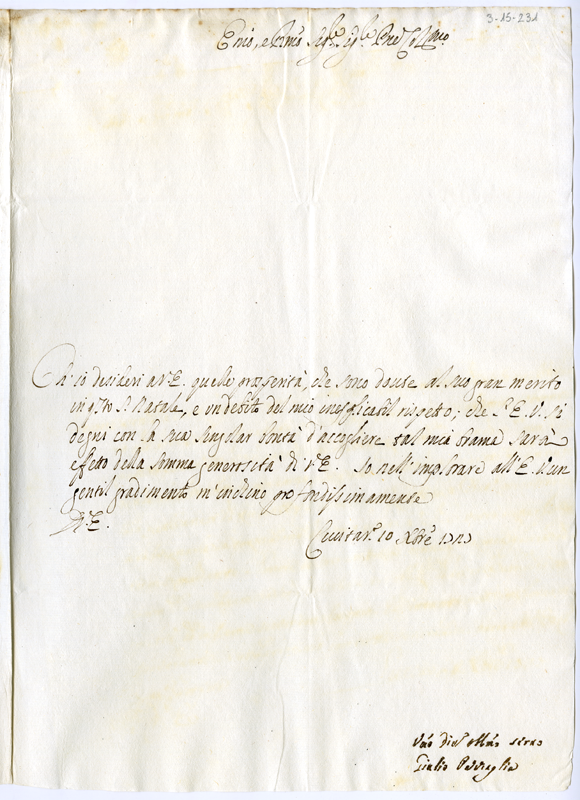 3-15-231
Emo, e Rmo Sigr. Sigr. Pne Colmo.
Ch'io desideri a V.E. quelle prosperità, che sono douute al suo gran merito
in q.to S. Natale, è un debito del mio inesplicabil rispetto; che l'E.V. si
degni con la sua singolar bontà d'accogliere tal mia brama sarà
effetto della somma generosità di V.E. Io nell'implorare all'E.V. un
gentil gradimento m'inchino profondissimamente
D.V.E.
Ciuitan. 10 Xbre
Vmo Diu.mo Obbmo seruo
Giulio